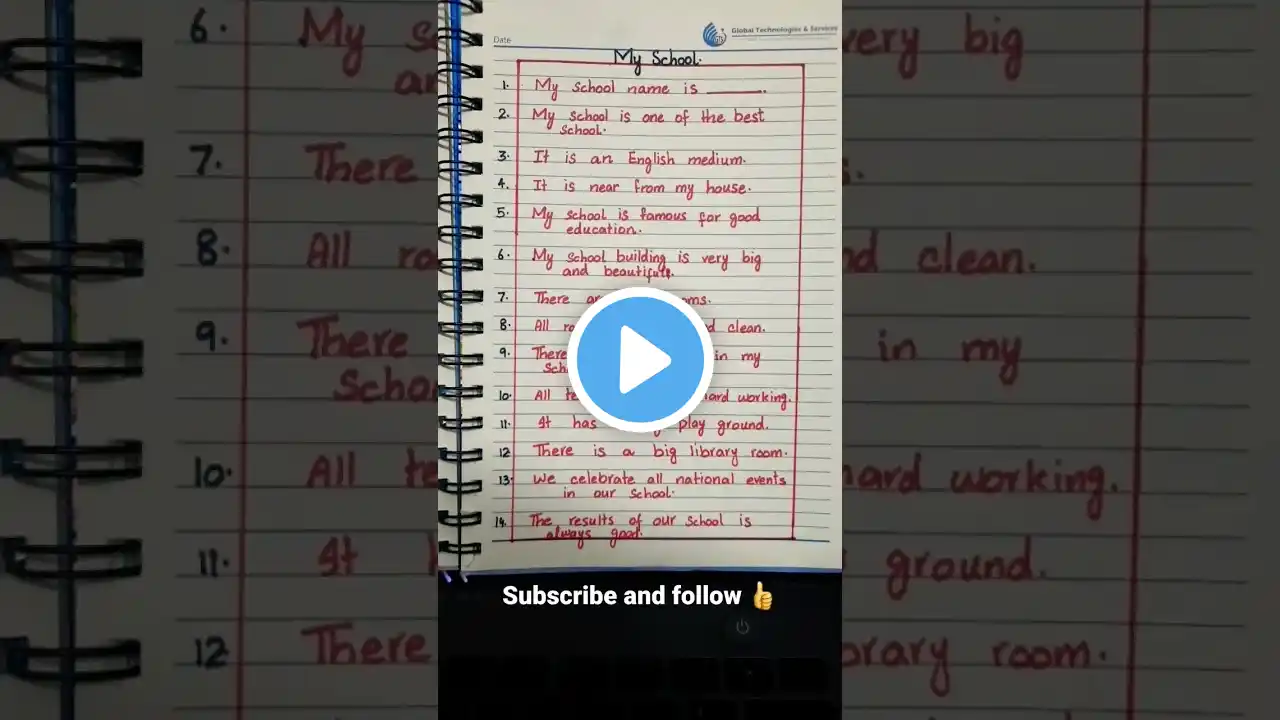 Global Technologies & Services
Date
My School.
1. My school name is ______.
2. My school is one of the best
school.
3. It is an English medium.
4. It is near from my house.
5. My school is famous for good
education.
6. My school building is very big
and beautiful.
7. There
8. All clean.
9. There in my
10. All hard working.
11. It has play ground.
12 There is a big library room.
13. We celebrate all national events
in our school.
14. The results of our school is
always good.
Subscribe and follow 👍